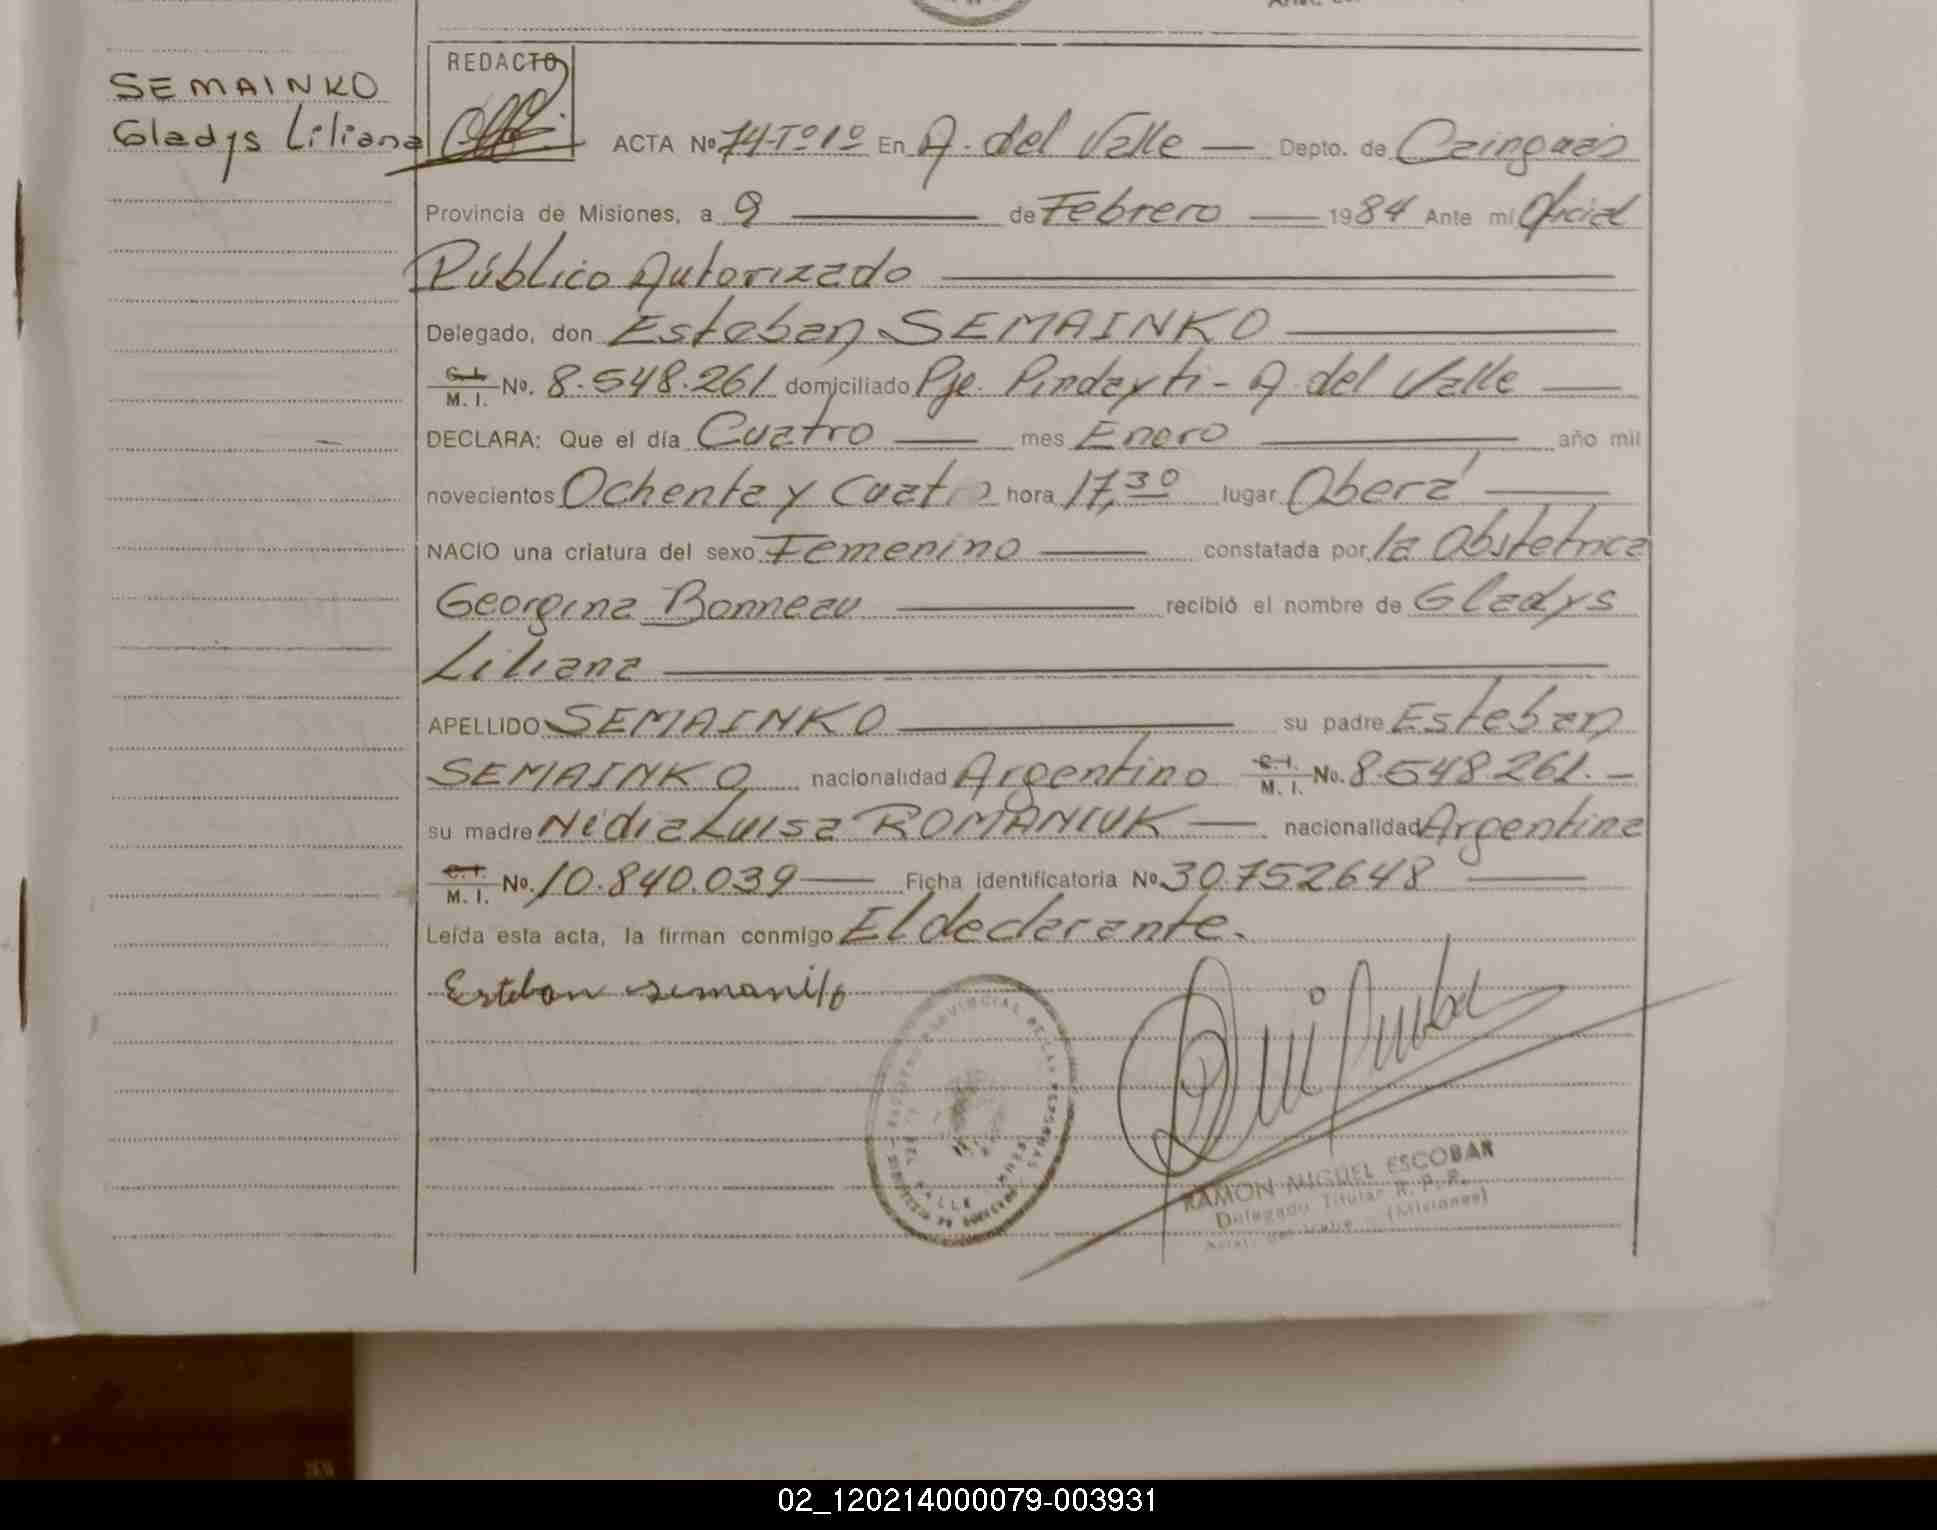 SEMAINKO
Gladys Liliana
REDACTO
ACTA Nº 74-Tº1º En A. del Valle — Depto. de Cainguás
Provincia de Misiones, a 9 — de Febrero — 1984 Ante mi Oficial
Público Autorizado
Delegado, don Esteban SEMAINKO
C.I. M. I. No. 8.548.261 domiciliado Pje. Pindayti - A. del Valle —
DECLARA: Que el día Cuatro — mes Enero — año mil
novecientos Ochenta y Cuatro hora 17,30 lugar Oberá —
NACIO una criatura del sexo Femenino — constatada por la Obstetrica
Georgina Bonneau — recibió el nombre de Gladys
Liliana —
APELLIDO SEMAINKO — su padre Esteban
SEMAINKO nacionalidad Argentino C.I. M. I. No. 8.548.261. —
su madre Nidia Luisa ROMANIUK — nacionalidad Argentina
C.I. M. I. No. 10.840.039 — Ficha identificatoria Nº 30.752648 —
Leída esta acta, la firman conmigo El declarante.
Esteban
RAMON MIGUEL ESCOBAR
Delegado Titular R. P. P.
(Misiones)
02_120214000079-003931